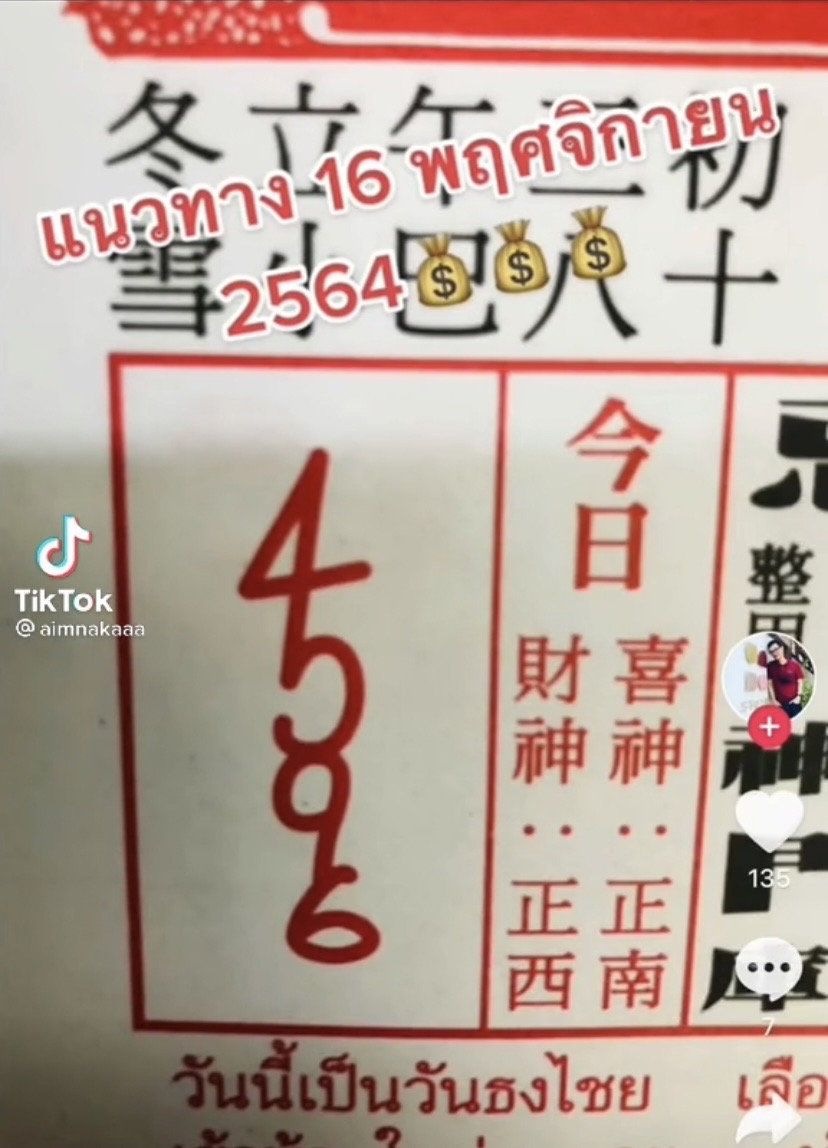 冬立午三初
แนวทาง 16 พฤศจิกายน
2564💰💰💰
雪小巳八十
4
5
9
6
今日
喜神：正南
財神：正西
整
神
TikTok
@aimnakaaa
135
7
วันนี้เป็นวันธงไชย